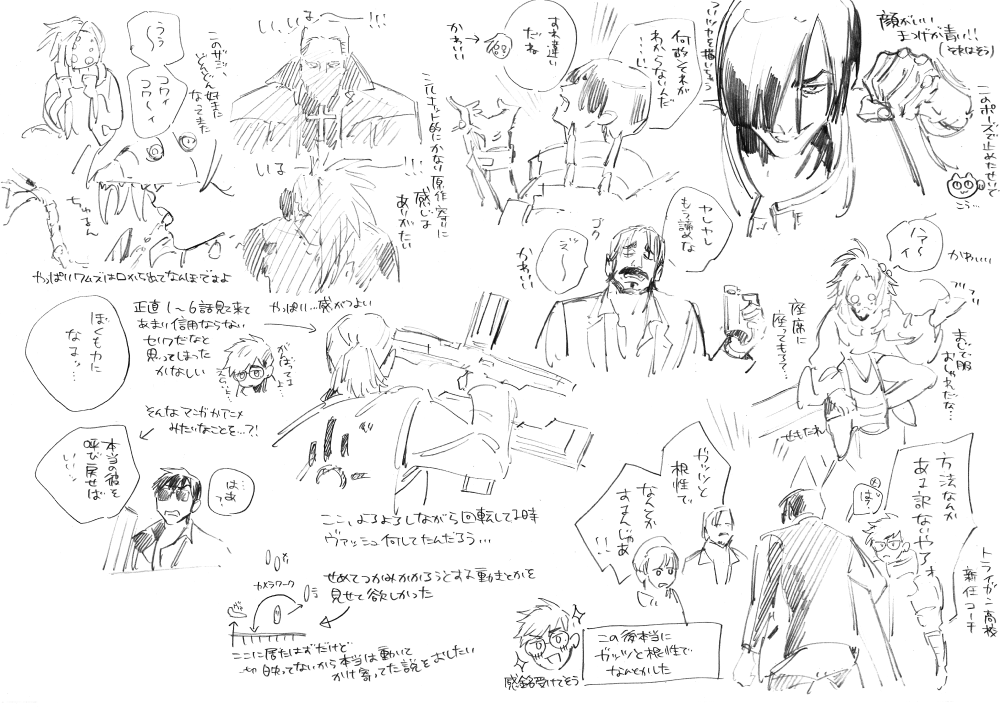 うぅ
〜
コワイ
コワイ
このザジ、
どんどん好きに
なってきた
ちゅるん
やっぱりワムズは口から出てなんぼですよ
い、いる〜!!!
いる〜!!!
シルエット的にかなり原作寄りに
感じる
ありがたい
やっぱり…感がつよい
かわいい
すれ違い
だね
何故それが
わからないんだ
……!!
顔がいい
まつげが青い!!
(それはそう)
このポーズで止めたせいで
こう…
ヤレヤレ
もう諦めな
ゴク
かわいい
座席に
座ってもろて…
ノア〜
イ
かわいい
まじで服
おしゃれだな…
せもたれ
ぼくもカに
なるッ…
正直1〜6話見て来て
あまり信用ならない
セリフだなと
思ってしまった
かなしい
がんばってるよ…
そんなマンガかアニメ
みたいなことを…?!
本当の彼を
呼び戻せば
いい…
は…あ?
ここ、よろよろしながら回転してる時
ヴァッシュ何してたんだろう…
カメラワーク
せめてつかみかかろうとする動きとかを
見せて欲しかった
ここに居たはずだけど
映ってないから本当は動いて
かけ寄ってた説をおしたい
ガッツと
根性で
なんとか
するんじゃあ
!!
方法なんか
ある訳ないやろォ
は?
トライガン高校
新任コーチ
この後本当に
ガッツと根性で
なんとかした
感銘受けてそう